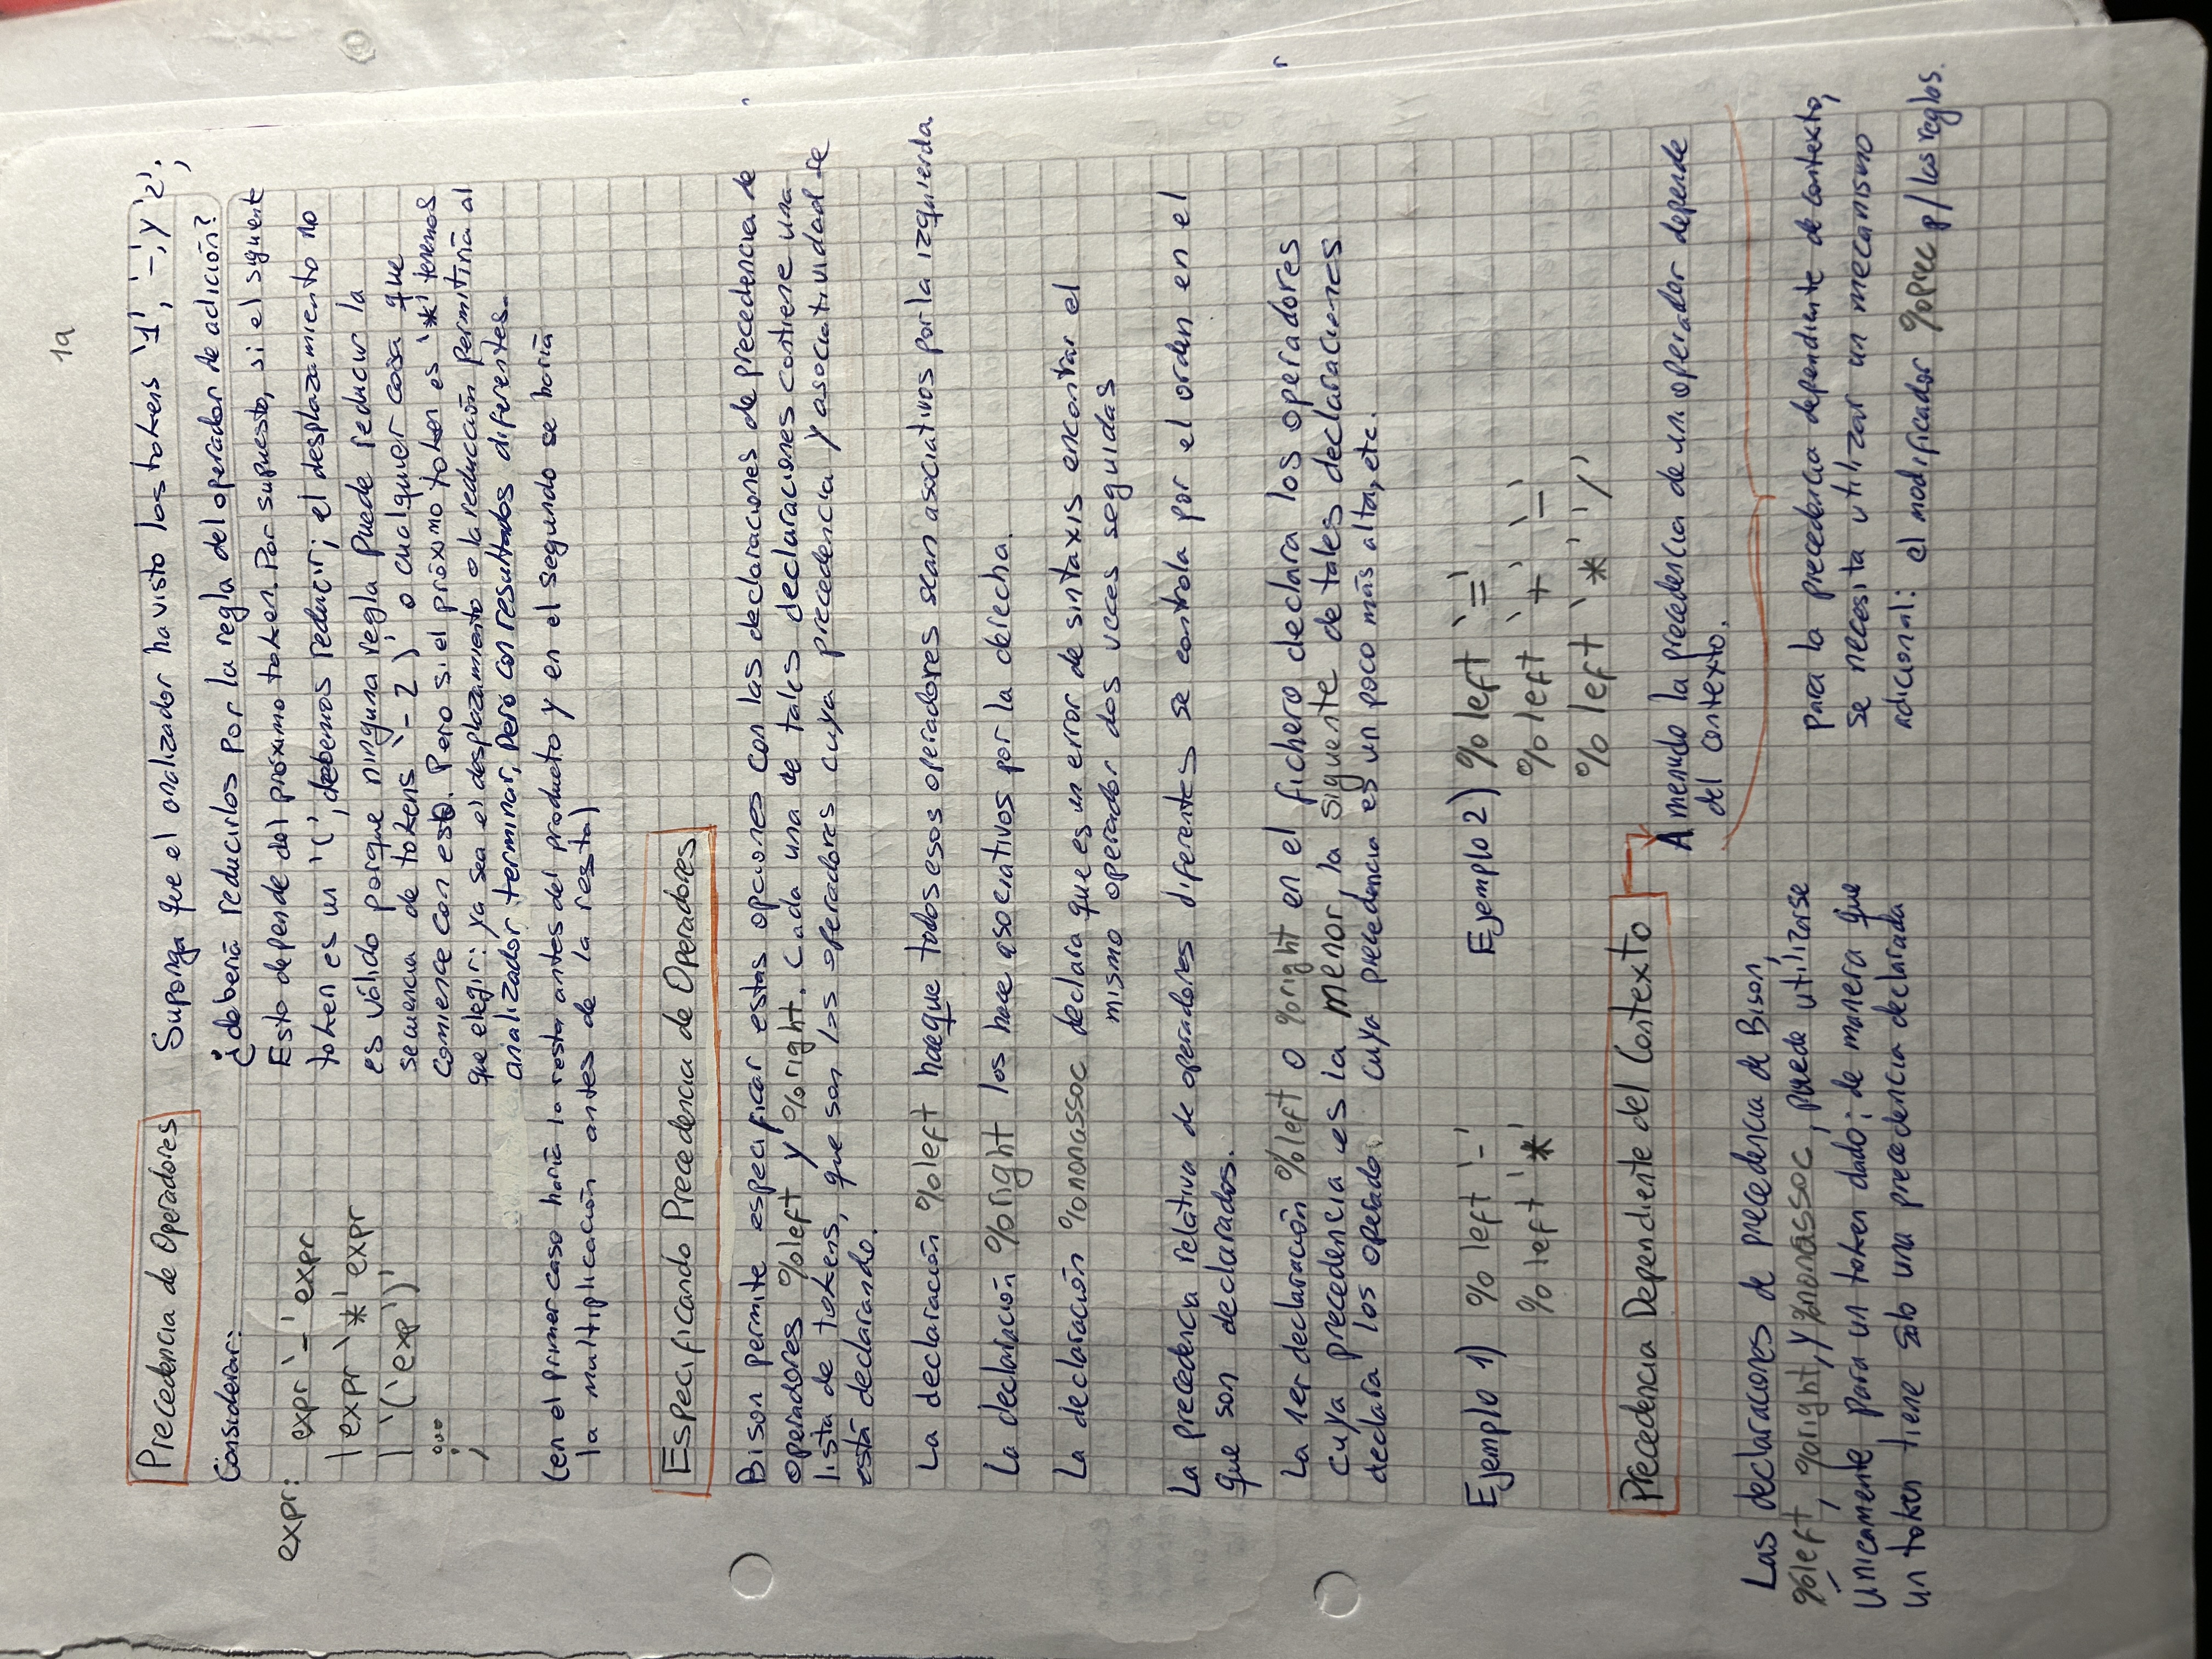 1a
Precedencia de Operadores
Considerar:
expr: expr '-' expr
| expr '*' expr
| '(' exp ')'
...
;
Suponga que el analizador ha visto los tokens '1', '-', y '2';
¿debería reducirlos por la regla del operador de adición?
Esto depende del próximo token. Por supuesto, si el siguiente
token es un '(', debemos reducir; el desplazamiento no
es válido porque ninguna regla puede reducir la
secuencia de tokens '- 2 )' o cualquier cosa que
comience con esto. Pero si el próximo token es '*' tenemos
que elegir: ya sea el desplazamiento o la reducción permitiría al
analizador terminar, pero con resultados diferentes.
(en el primer caso haría la resta antes del producto y en el segundo se haría
la multiplicación antes de la resta)
Especificando Precedencia de Operadores
Bison permite especificar estas opciones con las declaraciones de precedencia de
operadores %left y %right. Cada una de tales declaraciones contiene una
lista de tokens, que son los operadores cuya precedencia y asociatividad se
está declarando.
La declaración %left hace que todos esos operadores sean asociativos por la izquierda.
La declaración %right los hace asociativos por la derecha.
La declaración %nonassoc declara que es un error de sintaxis encontrar el
mismo operador dos veces seguidas
La precedencia relativa de operadores diferentes se controla por el orden en el
que son declarados.
La 1er declaración %left o %right en el fichero declara los operadores
cuya precedencia es la menor, la siguiente de tales declaraciones
declara los operado cuya precedencia es un poco más alta, etc.
Ejemplo 1) %left '-'
%left '*'
Ejemplo 2) %left '='
%left '+' '-'
%left '*' '/'
Precedencia Dependiente del Contexto
A menudo la precedencia de un operador depende
del contexto.
Las declaraciones de precedencia de Bison,
%left, %right, y %nonassoc, puede utilizarse
únicamente para un token dado; de manera que
un token tiene sólo una precedencia declarada
para la precedencia dependiente de contexto,
se necesita utilizar un mecanismo
adicional: el modificador %prec p/ las reglas.